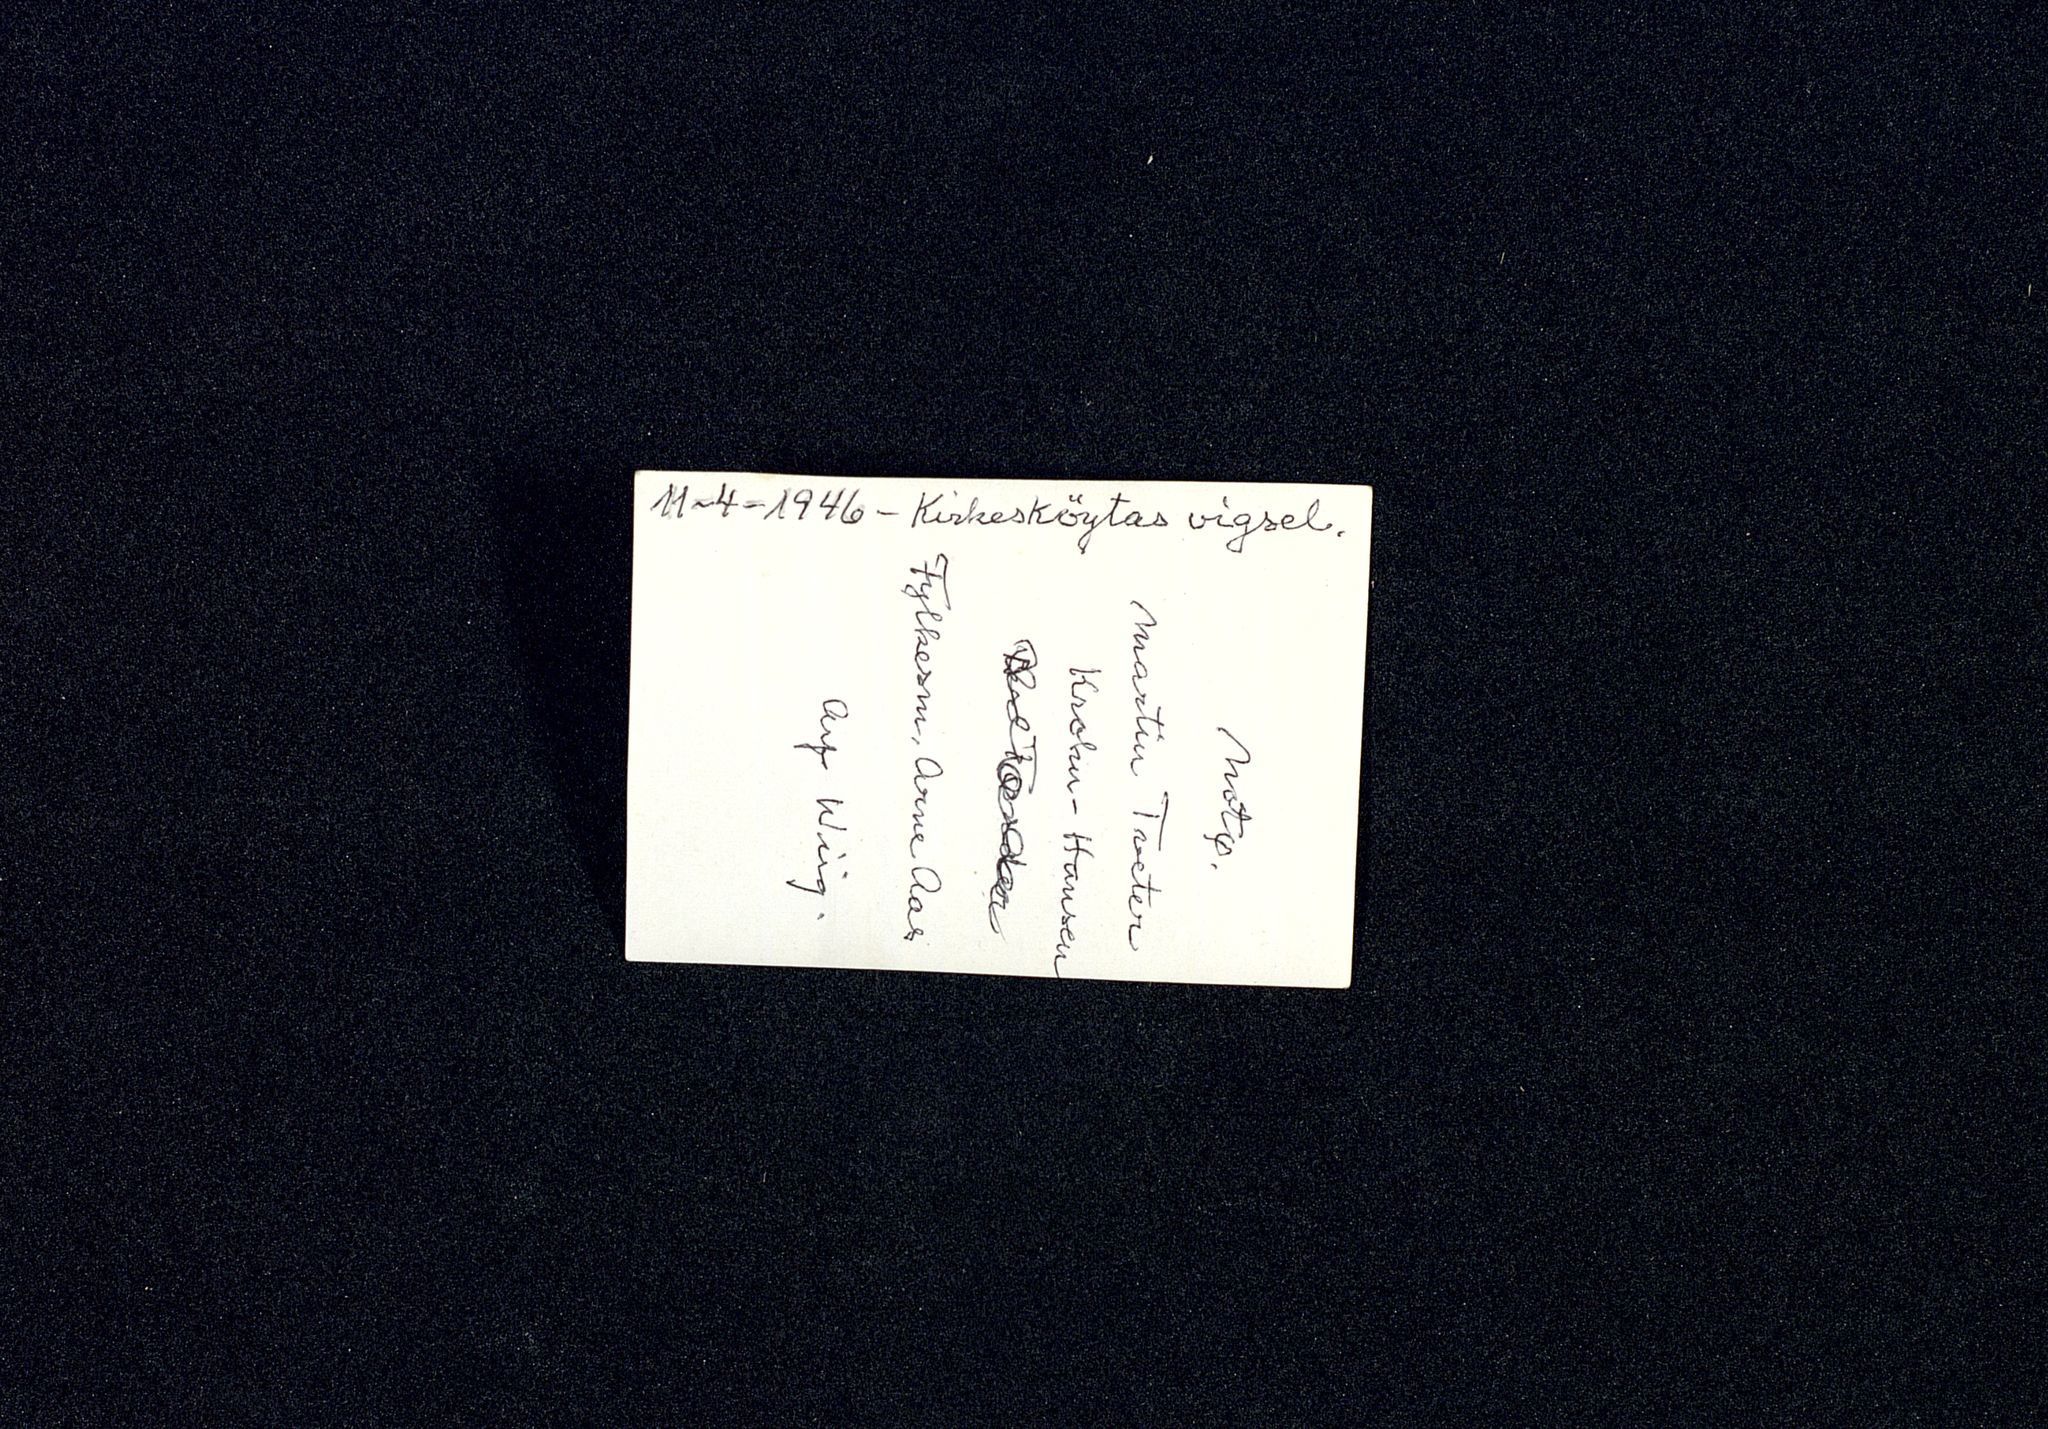 11-4-1946 - Kirkesköytas vigsel.
Motp.
Martin Tveter
Krohn-Hansen
Fylkesm, Arne Aas
Alf Wiig.